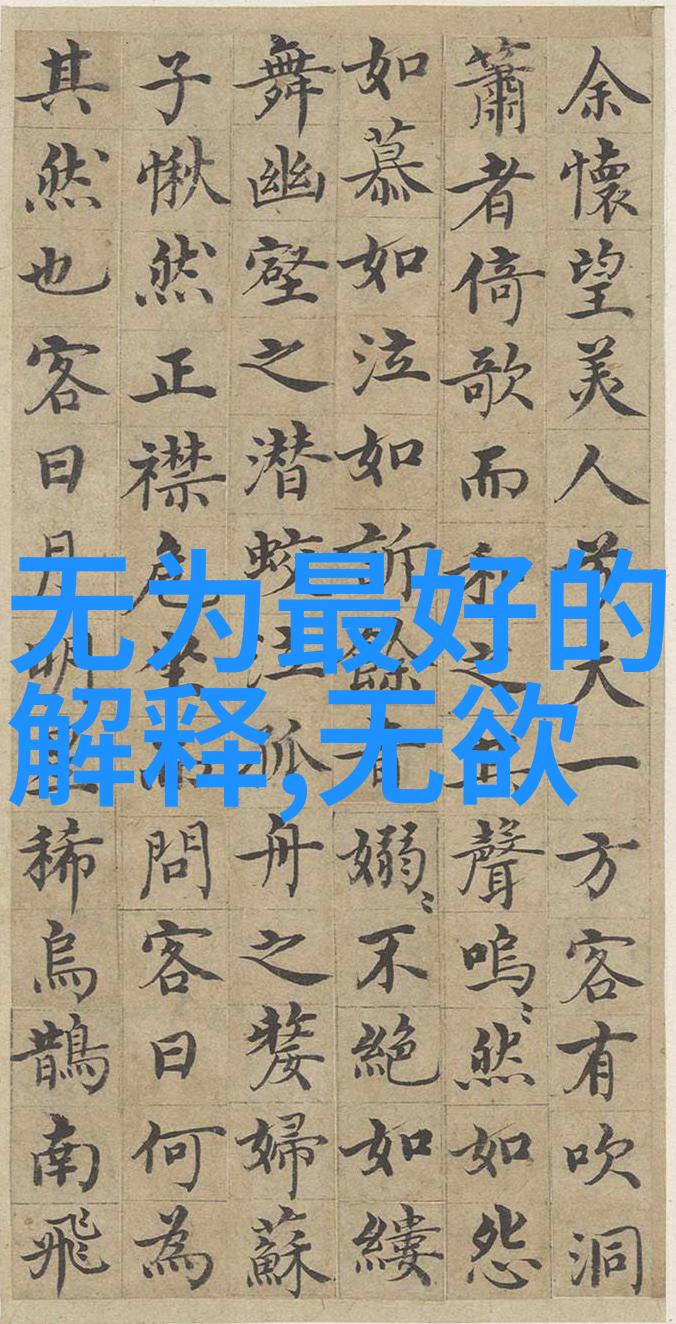 无为最好的
解释,无欲
余懷望美人兮天一方客有吹洞
簫者倚歌而和之其聲嗚〻然如怨
如慕如泣如訴餘音嫋〻不絕如縷
舞幽壑之潛蛟泣孤舟之嫠婦蘇
子愀然正襟危坐而問客曰何為
其然也客曰月明星稀烏鵲南飛